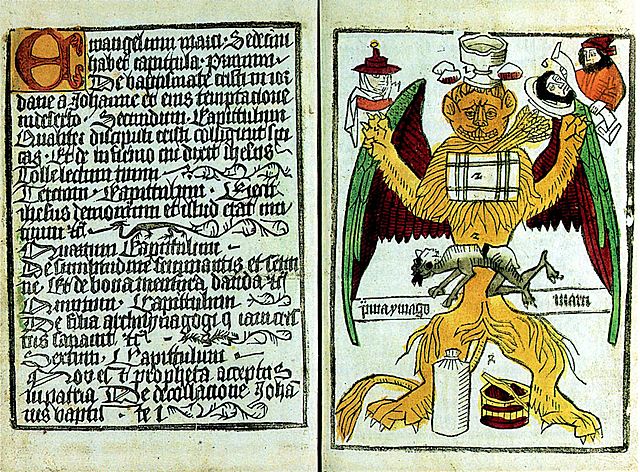 Ewangelium marci · Sedecim
habet capitula · Primum ·
De baptismate cristi in ior
dane a Johanne et eius temptacione
in deserto · Secundum Capitulum
Qualiter discipuli cristi colligunt spi
cas · Et de infirmo cui dixit ihesus
Tolle lectum tuum
Tercium · Capitulum · Eiecit
ihesus demonium et istud erat mu
tum &c
Quartum Capitulum ·
De similitudine seminantis et semi
ne · Et de bona mensura danda &c
Quintum · Capitulum ·
De filia archisynagogi quam cris
tus sanavit · &c
Sextum · Capitulum ·
Non est propheta acceptus
in patria De decollacione Joha
nis baptiste
2
2
prima ymago marci